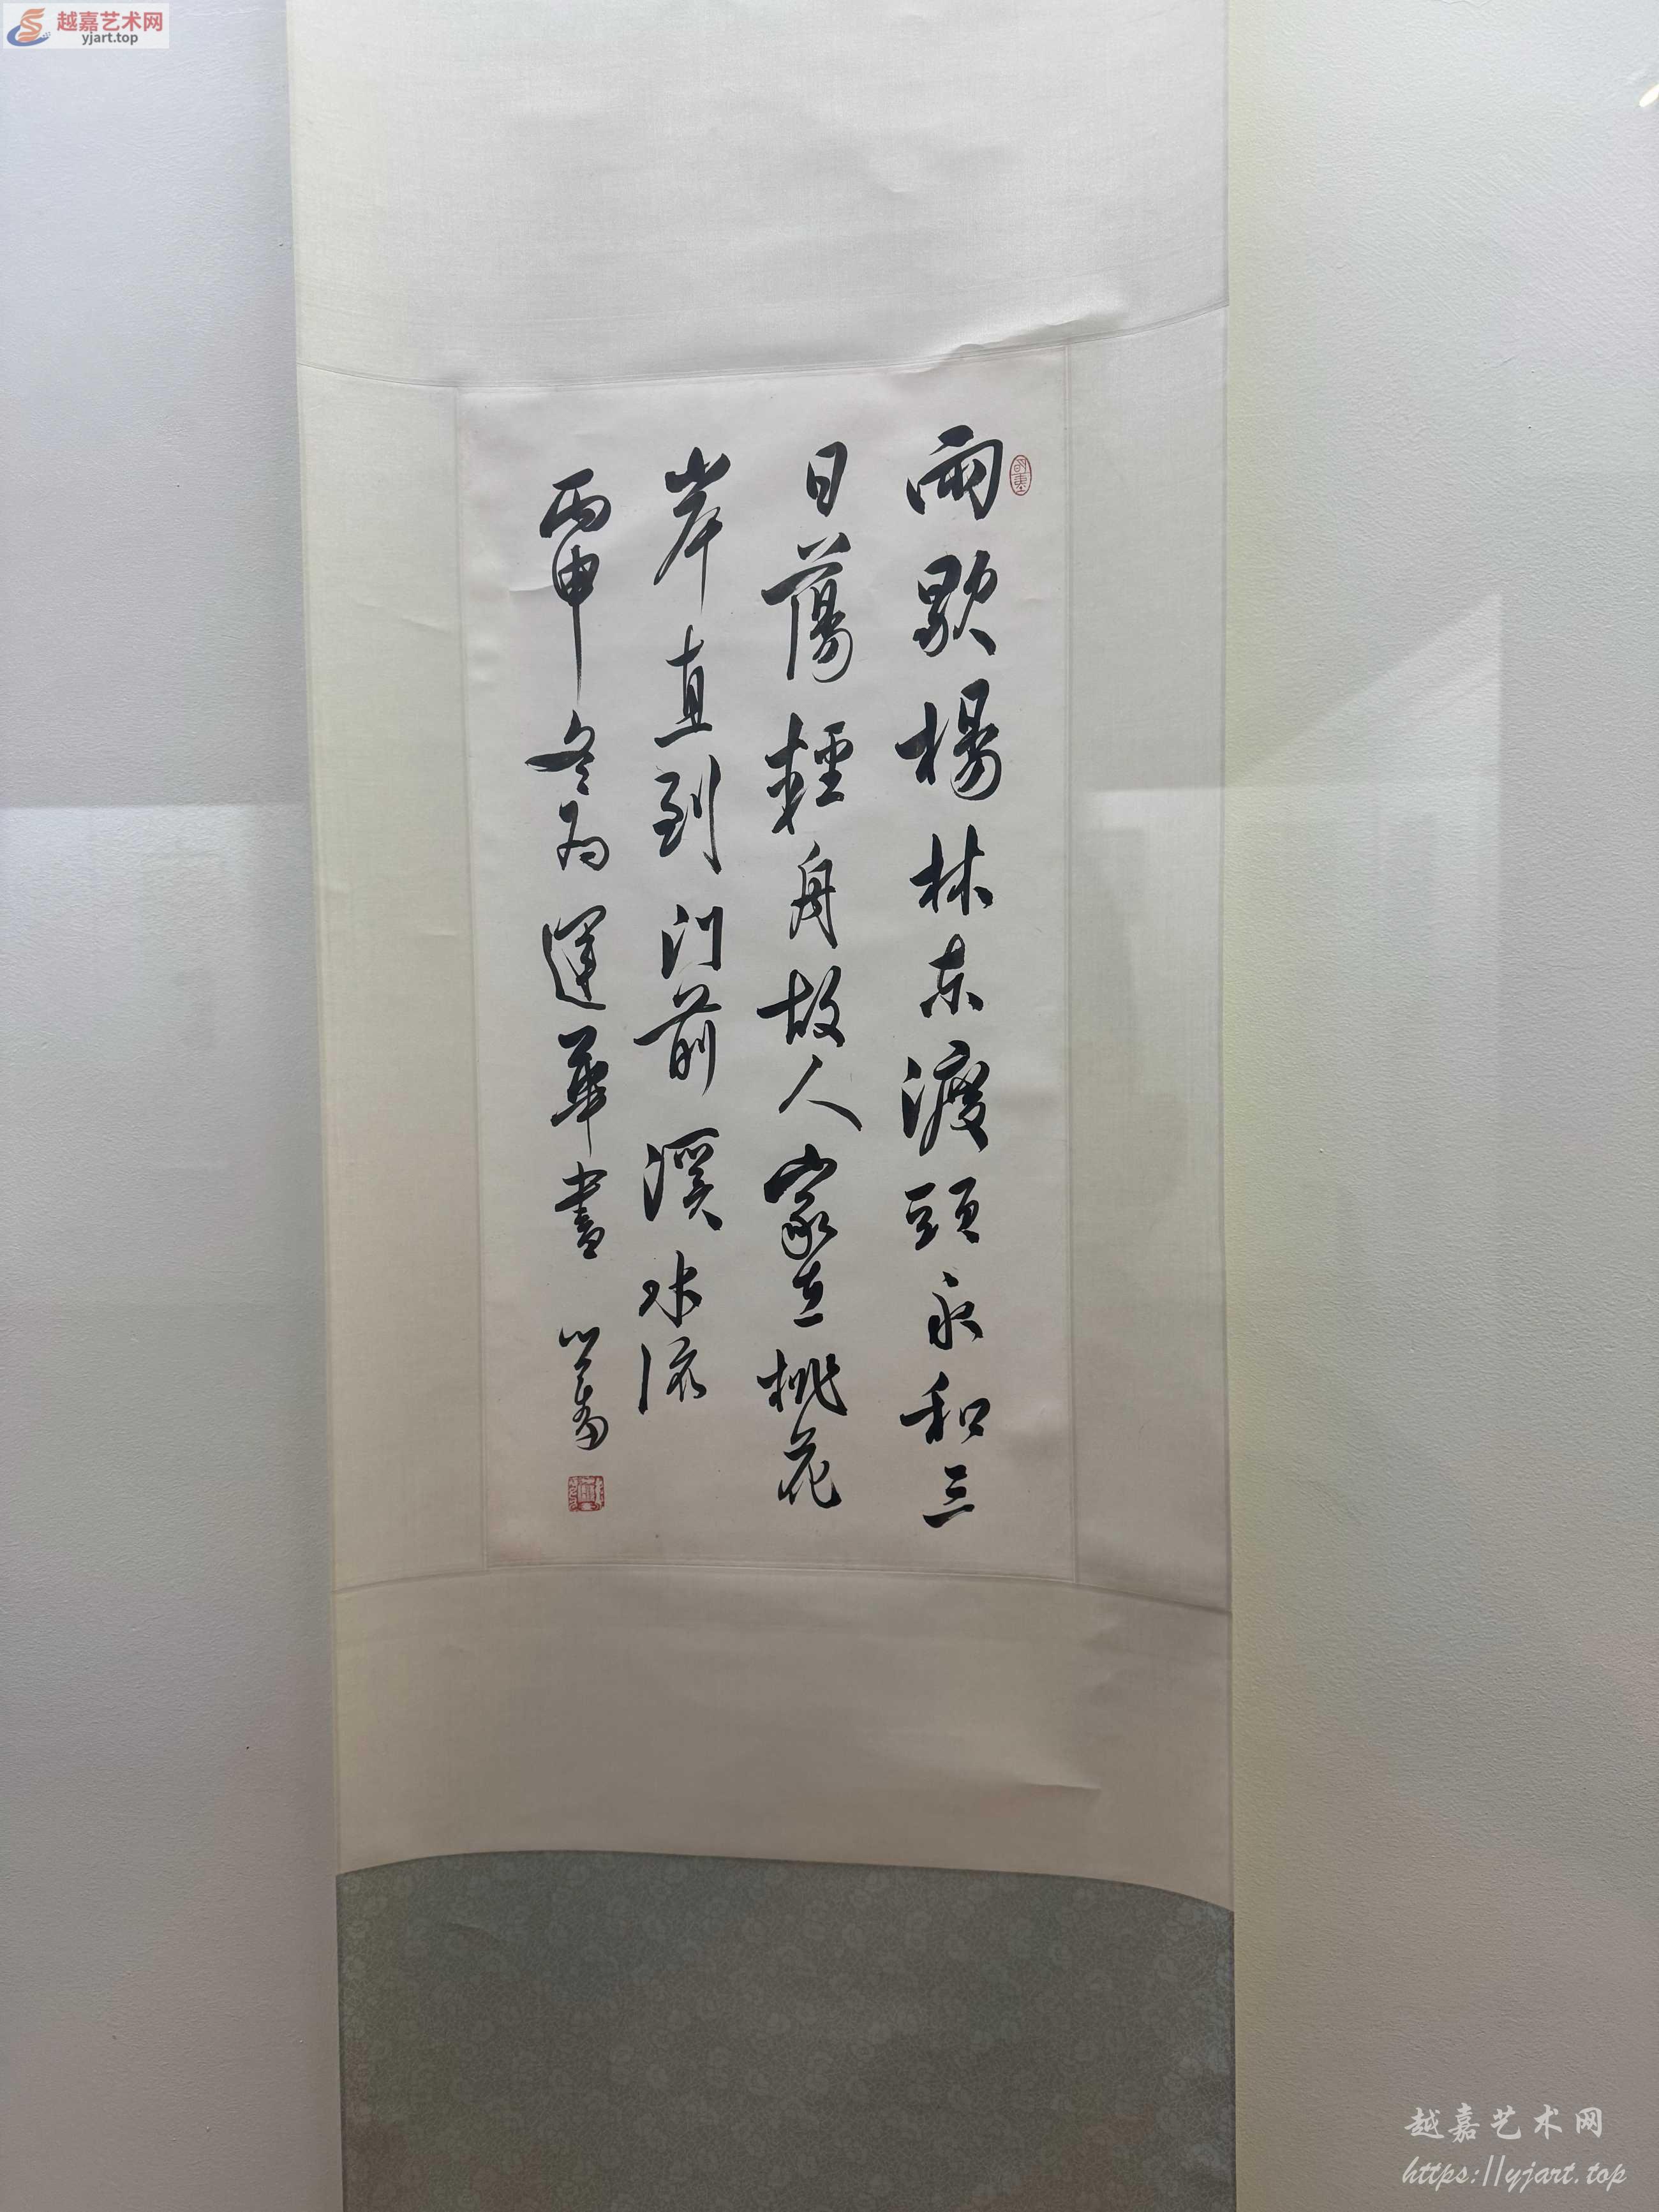 越嘉艺术网
yjart.top
雨歇楊林東渡頭永和三
日蕩輕舟故人家在桃花
岸直到门前溪水流
丙申冬為運華書 心畬
越嘉艺术网
https://yjart.top